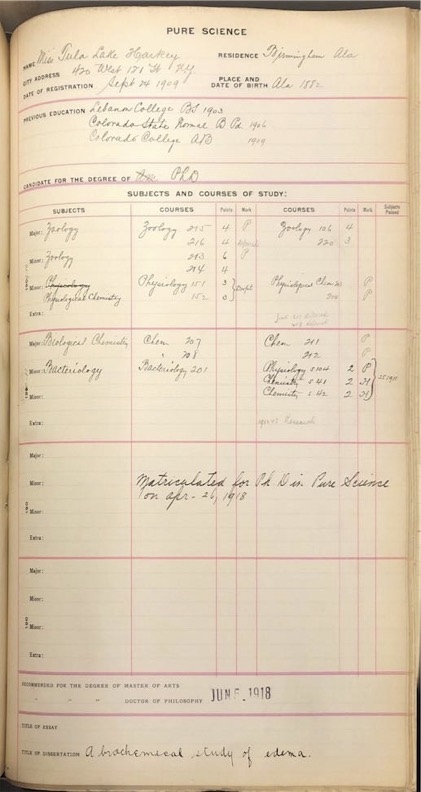 PURE SCIENCE
NAME Miss Tula Lake Harkey RESIDENCE Birmingham Ala
CITY ADDRESS 420 West 121 St NY PLACE AND
DATE OF REGISTRATION Sept 24 1909 DATE OF BIRTH Ala 1882
PREVIOUS EDUCATION Lebanon College BS 1903
Colorado State Normal B Pd 1906
Colorado College AB 1909
CANDIDATE FOR THE DEGREE OF PhD
SUBJECTS AND COURSES OF STUDY:
SUBJECTS COURSES Points Mark COURSES Points Mark Subjects Passed
Major: Zoology Zoology 215 4 P Zoology 106 4
216 4 220 3
Minor: Zoology 213 6 P
214 4
Minor: Physiology Physiology 151 3 Physiological Chem P
Physiological Chemistry 152 P
Extra:
Major: Biological Chemistry Chem 207 Chem 211 P
" 208 212 P
Minor: Bacteriology Bacteriology 201 Physiology s104 2 P
Chemistry s41 2 H
Minor: Chemistry s42 2 H
Extra: Research
Major:
Minor: Matriculated for Ph D in Pure Science
on Apr- 26, 1918
Minor:
Extra:
Major:
Minor:
Minor:
Extra:
RECOMMENDED FOR THE DEGREE OF MASTER OF ARTS
" " " DOCTOR OF PHILOSOPHY JUN 5 1918
TITLE OF ESSAY
TITLE OF DISSERTATION A biochemical study of edema.